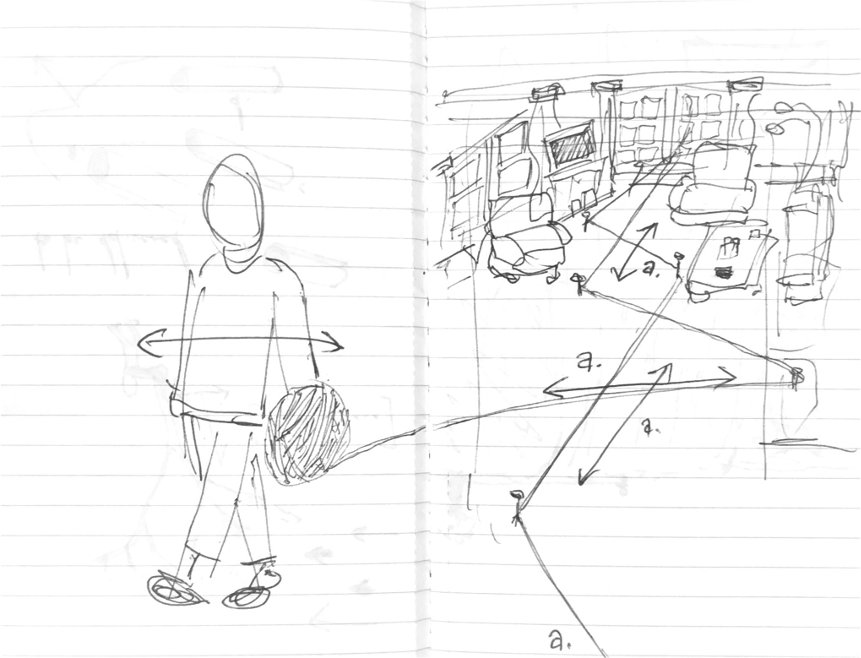 a.
a.
a.
a.